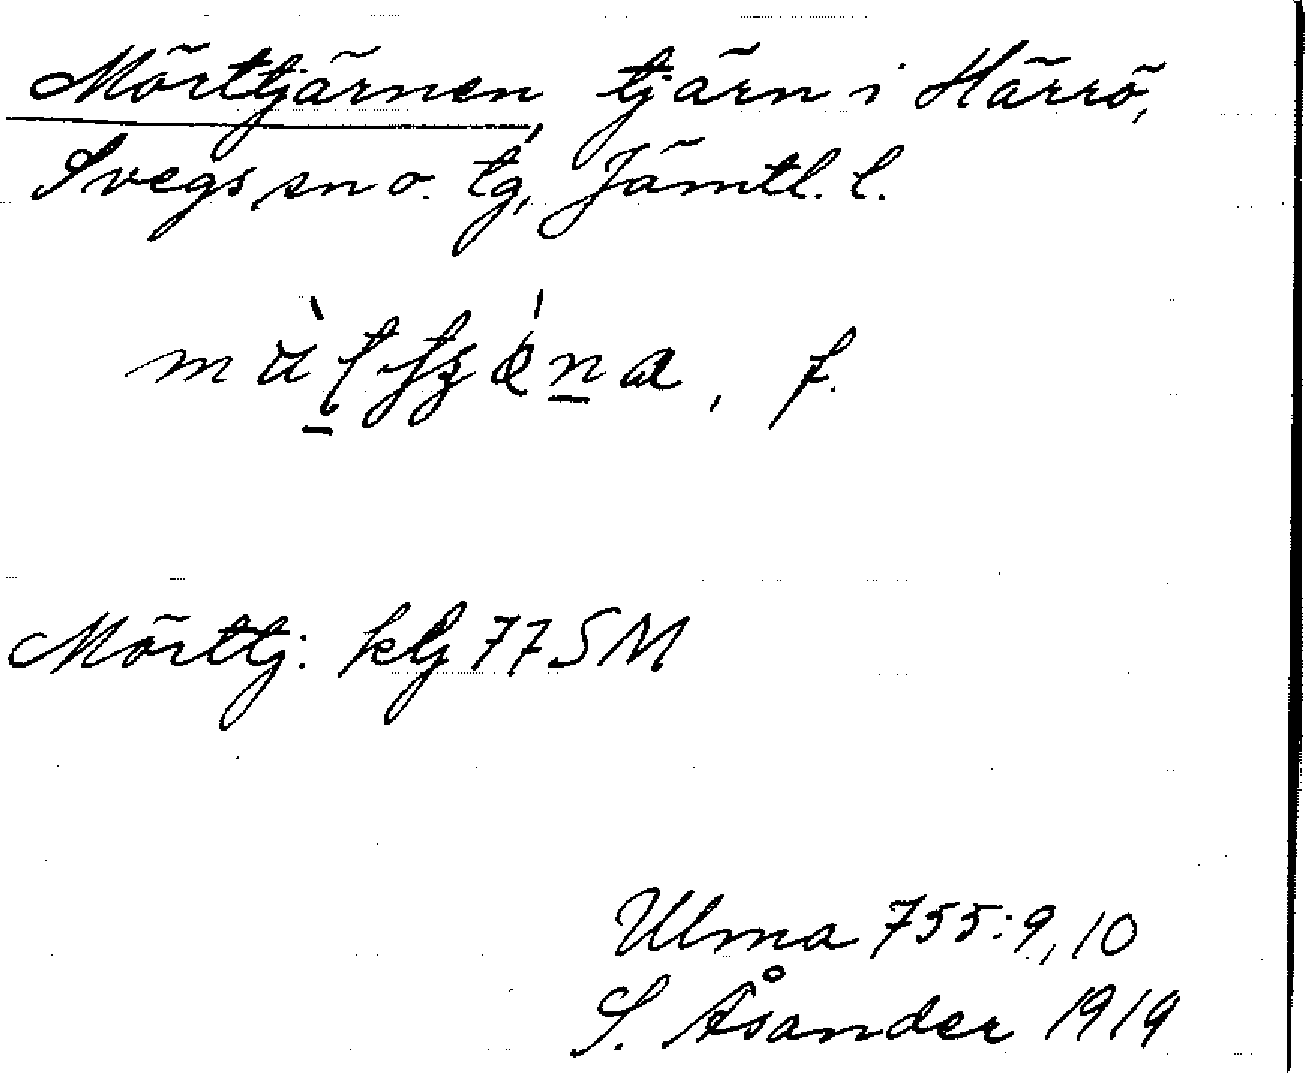 Mörttjärnen, tjärn i Härrö,
Svegs sn o. tg, Jämtl. l.
f.
Mörttj: klj 77 SM
Ulma 755: 9, 10
S. Åsander 1919